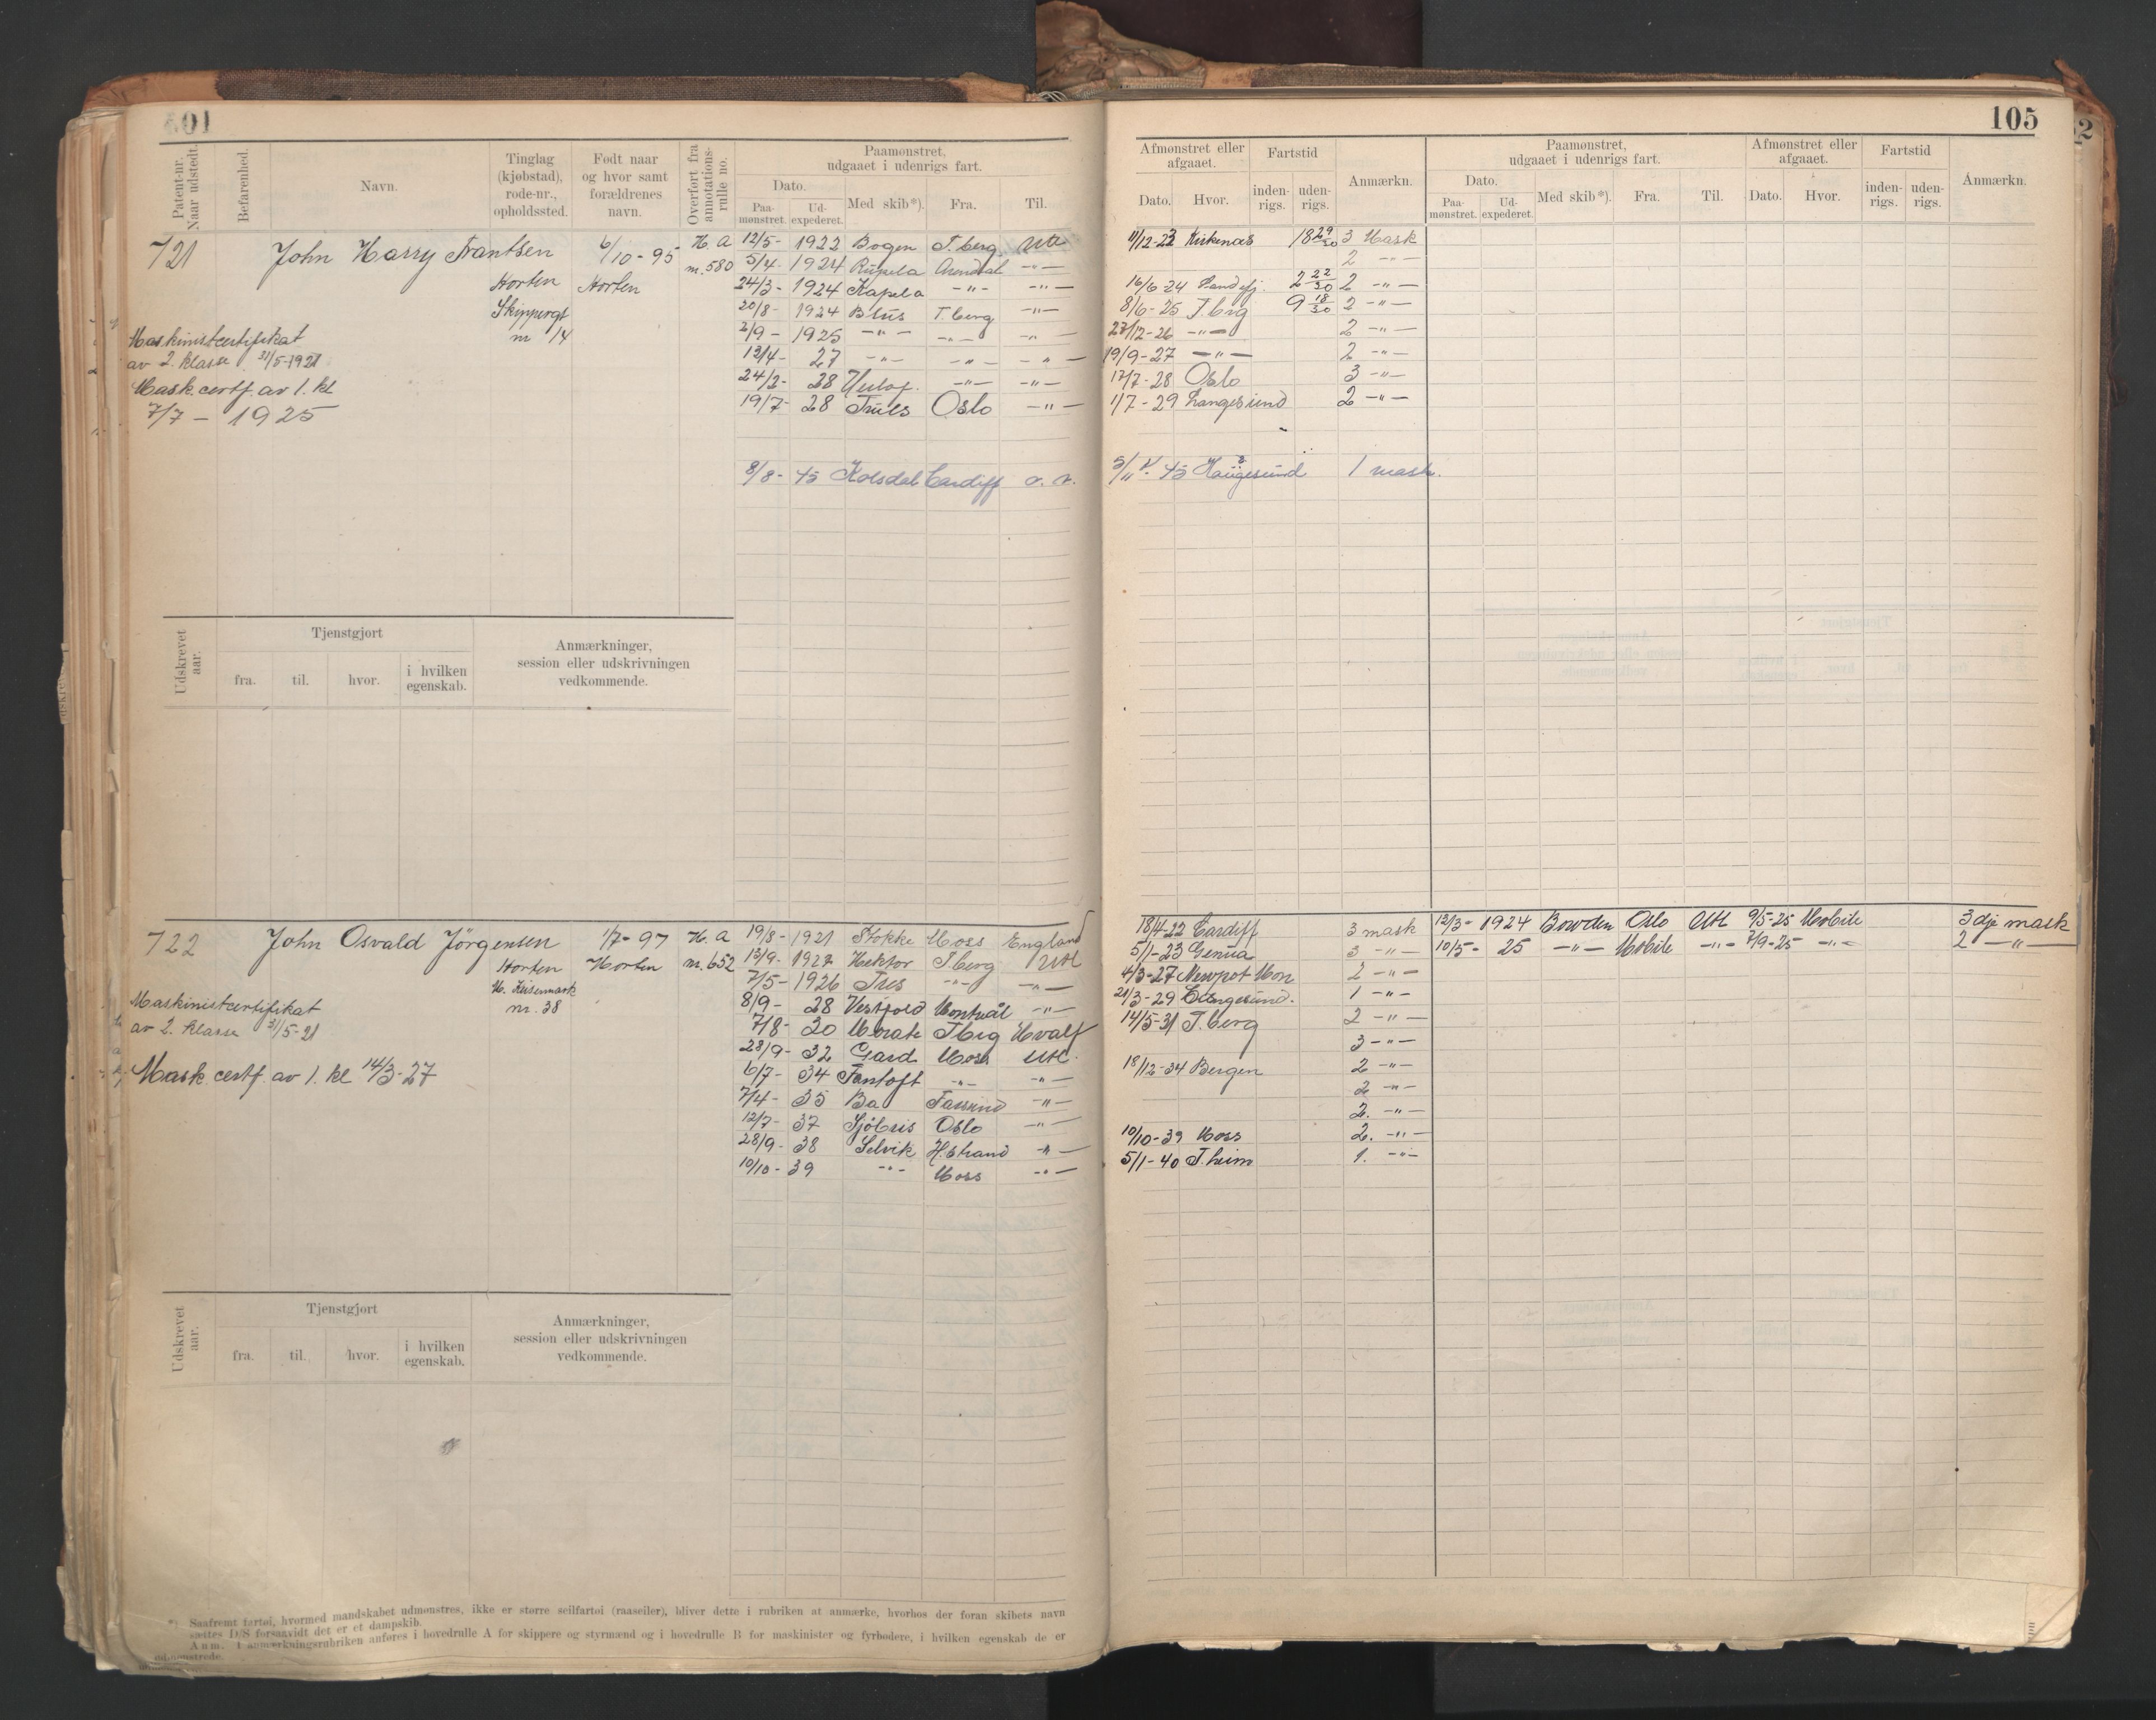 105
Patent-nr. Naar udstedt.
Befarenhed.
Navn.
Tinglag (kjøbstad), rode-nr., opholdssted.
Født naar og hvor samt forældrenes navn.
Overført fra annotations-rulle no.
Paamønstret, udgaaet i udenrigs fart.
Dato.
Paa-mønstret.
Ud-expederet.
Med skib*).
Fra.
Til.
Afmønstret eller afgaaet.
Dato.
Hvor.
Fartstid
inden-rigs.
uden-rigs.
Anmærkn.
Paamønstret, udgaaet i udenrigs fart.
Dato.
Paa-mønstret.
Ud-expederet.
Med skib*).
Fra.
Til.
Afmønstret eller afgaaet.
Dato.
Hvor.
Fartstid
inden-rigs.
uden-rigs.
Anmærkn.
721 John Harry Frantsen 6/10-95 H. A
Horten Horten nr. 580
Skippergt
nr 14
Maskinistcertifikat
av 2. klasse 31/5-1921
Mask. certf. av 1. kl
7/7 - 1925
12/5- 1922 Bogen T.berg Utl 11/12-23 Kirkenes 18 29/30 3 Mask
5/4- 1924 Arendal -"- 2 -"-
24/3- 1924 Kapela -"- -"- 16/6-24 Sandefj. 2 22/30 2 -"-
20/8- 1924 T.berg -"- 8/6-25 T.brg 9 18/30 2 -"-
2/9- 1925 -"- -"- -"- 27/12-26 -"- 2 -"-
13/4- 27 -"- -"- -"- 19/9-27 -"- 2 -"-
24/2- 28 -"- -"- 17/7-28 Oslo 3 -"-
19/7- 28 Truls Oslo -"- 1/7-29 Langesund 2 -"-
8/8- 45 Kolsdal Cardiff 5/11 45 Haugesund 1 mask.
Udskrevet aar.
Tjenstgjort
fra.
til.
hvor.
i hvilken egenskab.
Anmærkninger, session eller udskrivningen vedkommende.
722 John Osvald Jørgensen 1/7-97 H. A
Horten Horten nr. 652
nr. 38
Maskinistcertifikat
av 2. klasse 31/5-21
Mask. certf. av 1. kl 14/3-27
19/8- 1921 Stokke Moss England 18/4-22 Cardiff 3 mask 12/3- 1924 Bowden Oslo Utl 9/5-25 Mobile 3dje mask
13/9- 1922 Hektor T.berg Utl 5/1-23 Genua 3 -"- 10/5- 25 -"- Mobile -"- 7/9-25 -"- 2 -"-
7/5- 1926 Tres -"- -"- 4/3-27 Newport Mon 2 -"-
8/9- 28 Vestfold Montreal -"- 21/3-29 Langesund. 1 -"-
7/8- 30 T.brg Hvalf 14/5-31 T.berg 2 -"-
28/9- 32 Gard Moss Utl. 3 -"-
6/7- 34 Fantoft -"- -"- 18/12-34 Bergen 2 -"-
7/4- 35 Ba -"- 2 -"-
12/7- 37 Sjöbris Oslo -"- 2. -"-
28/9- 38 Selvik H.strand -"- 10/10-39 Moss 2. -"-
10/10- 39 -"- Moss -"- 5/1-40 T.heim 1. -"-
Udskrevet aar.
Tjenstgjort
fra.
til.
hvor.
i hvilken egenskab.
Anmærkninger, session eller udskrivningen vedkommende.
*) Saafremt fartøi, hvormed mandskabet udmønstres, ikke er større seilfartøi (raaseiler), bliver dette i rubriken at anmærke, hvorhos der foran skibets navn
sættes D/S forsaavidt det er et dampskib.
Anm. I anmerkningsrubriken anføres i hovedrulle A for skippere og styrmænd og i hovedrulle B for maskinister og fyrbødere, i hvilken egenskab de er
udmønstrede.